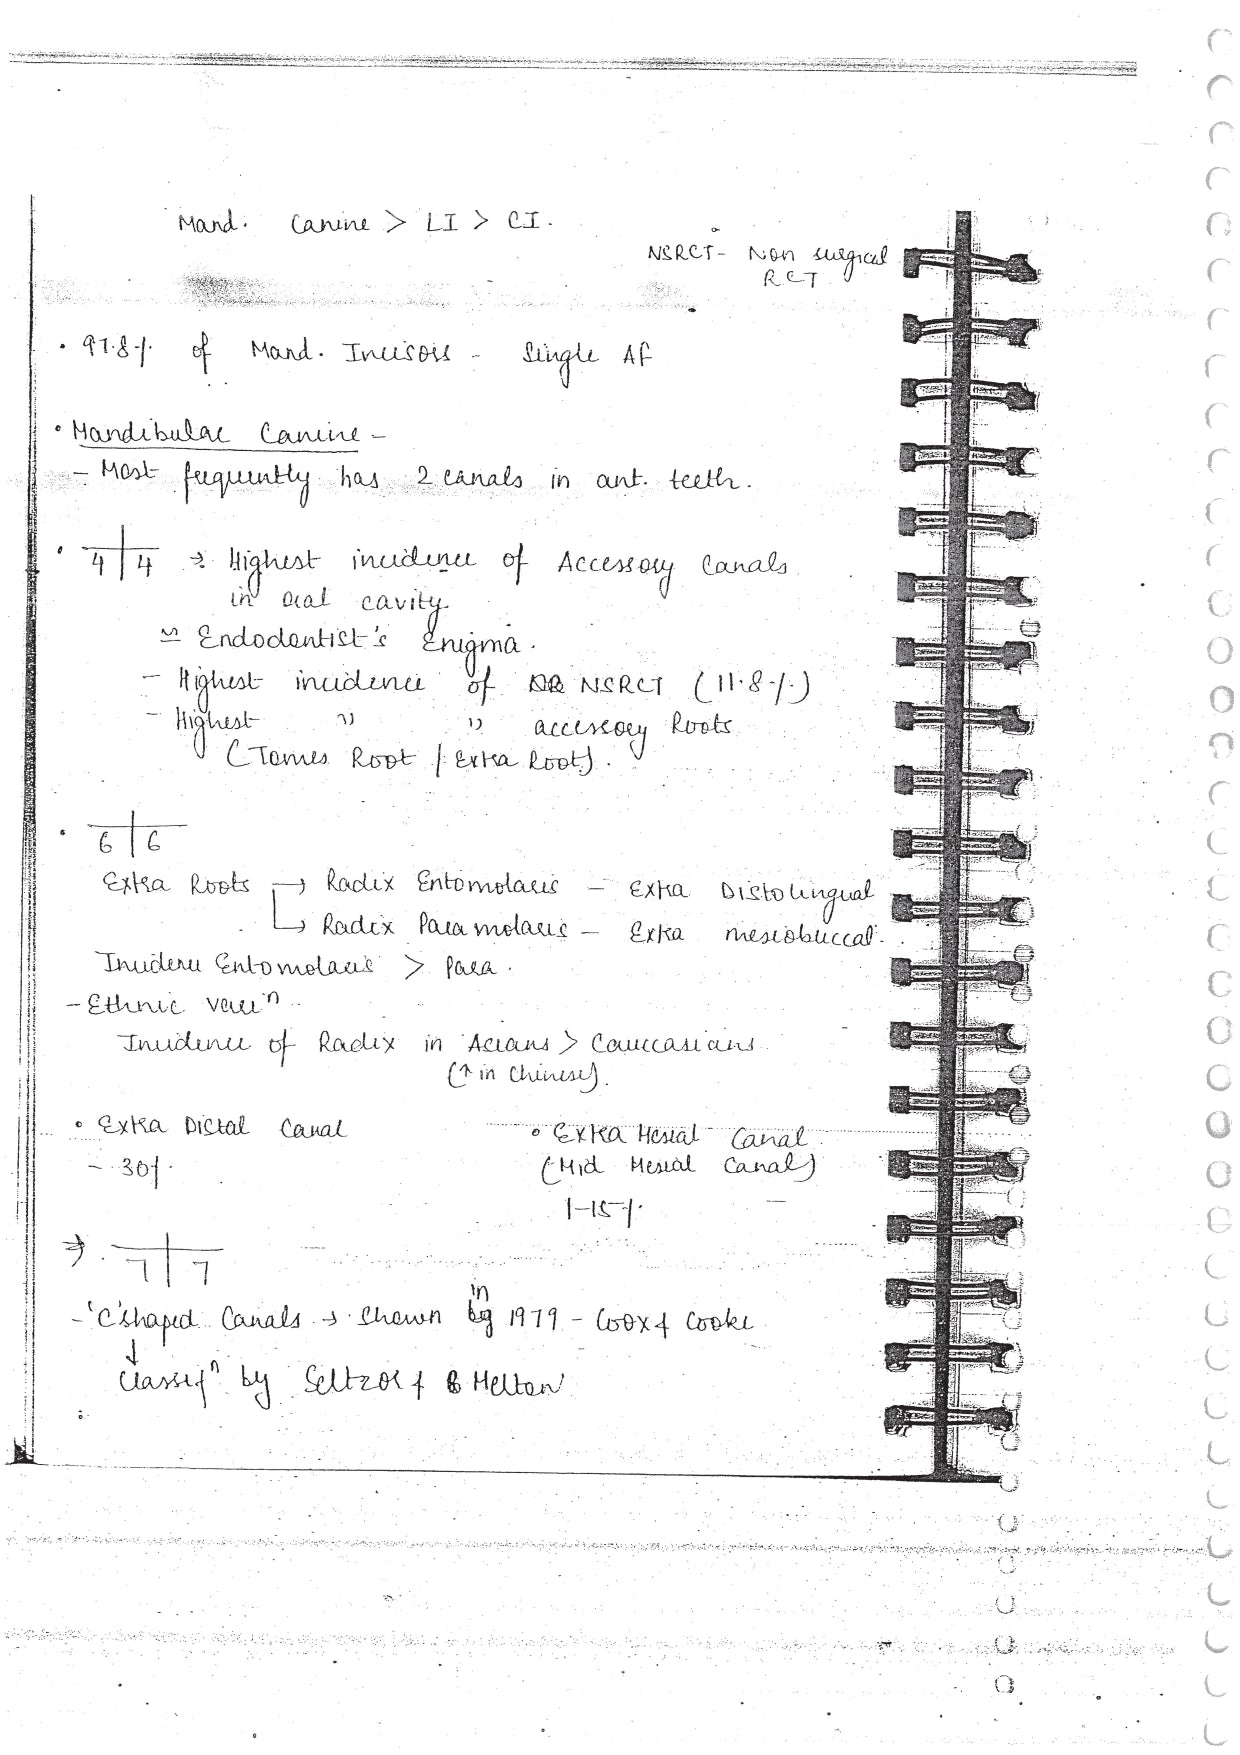 Mand. Canine > LI > CI.
NSRCT - Non surgical
RCT
• 97.8% of Mand. Incisors - Single AF
• Mandibular Canine -
- Most frequently has 2 canals in ant. teeth.
• 4|4 → Highest incidence of Accessory Canals
in oral cavity
≈ Endodontist's Enigma.
- Highest incidence of NSRCT (11.8%)
- Highest " " accessory Roots
(Tomes Root / Extra Root).
• 6|6
Extra Roots → Radix Entomolaris - Extra Distolingual
→ Radix Paramolaris - Extra mesiobuccal.
Incidence Entomolaris > Para.
- Ethnic varin
Incidence of Radix in Asians > Cauccasians
(↑ in Chinese).
• Extra Distal Canal
- 30%.
• Extra Mesial Canal
(Mid Mesial Canal)
1-15%.
⇒ . 7|7
- 'C' shaped Canals → Shown in 1979 - Coox & Cooke
↓
Classifn by Seltzor & Melton